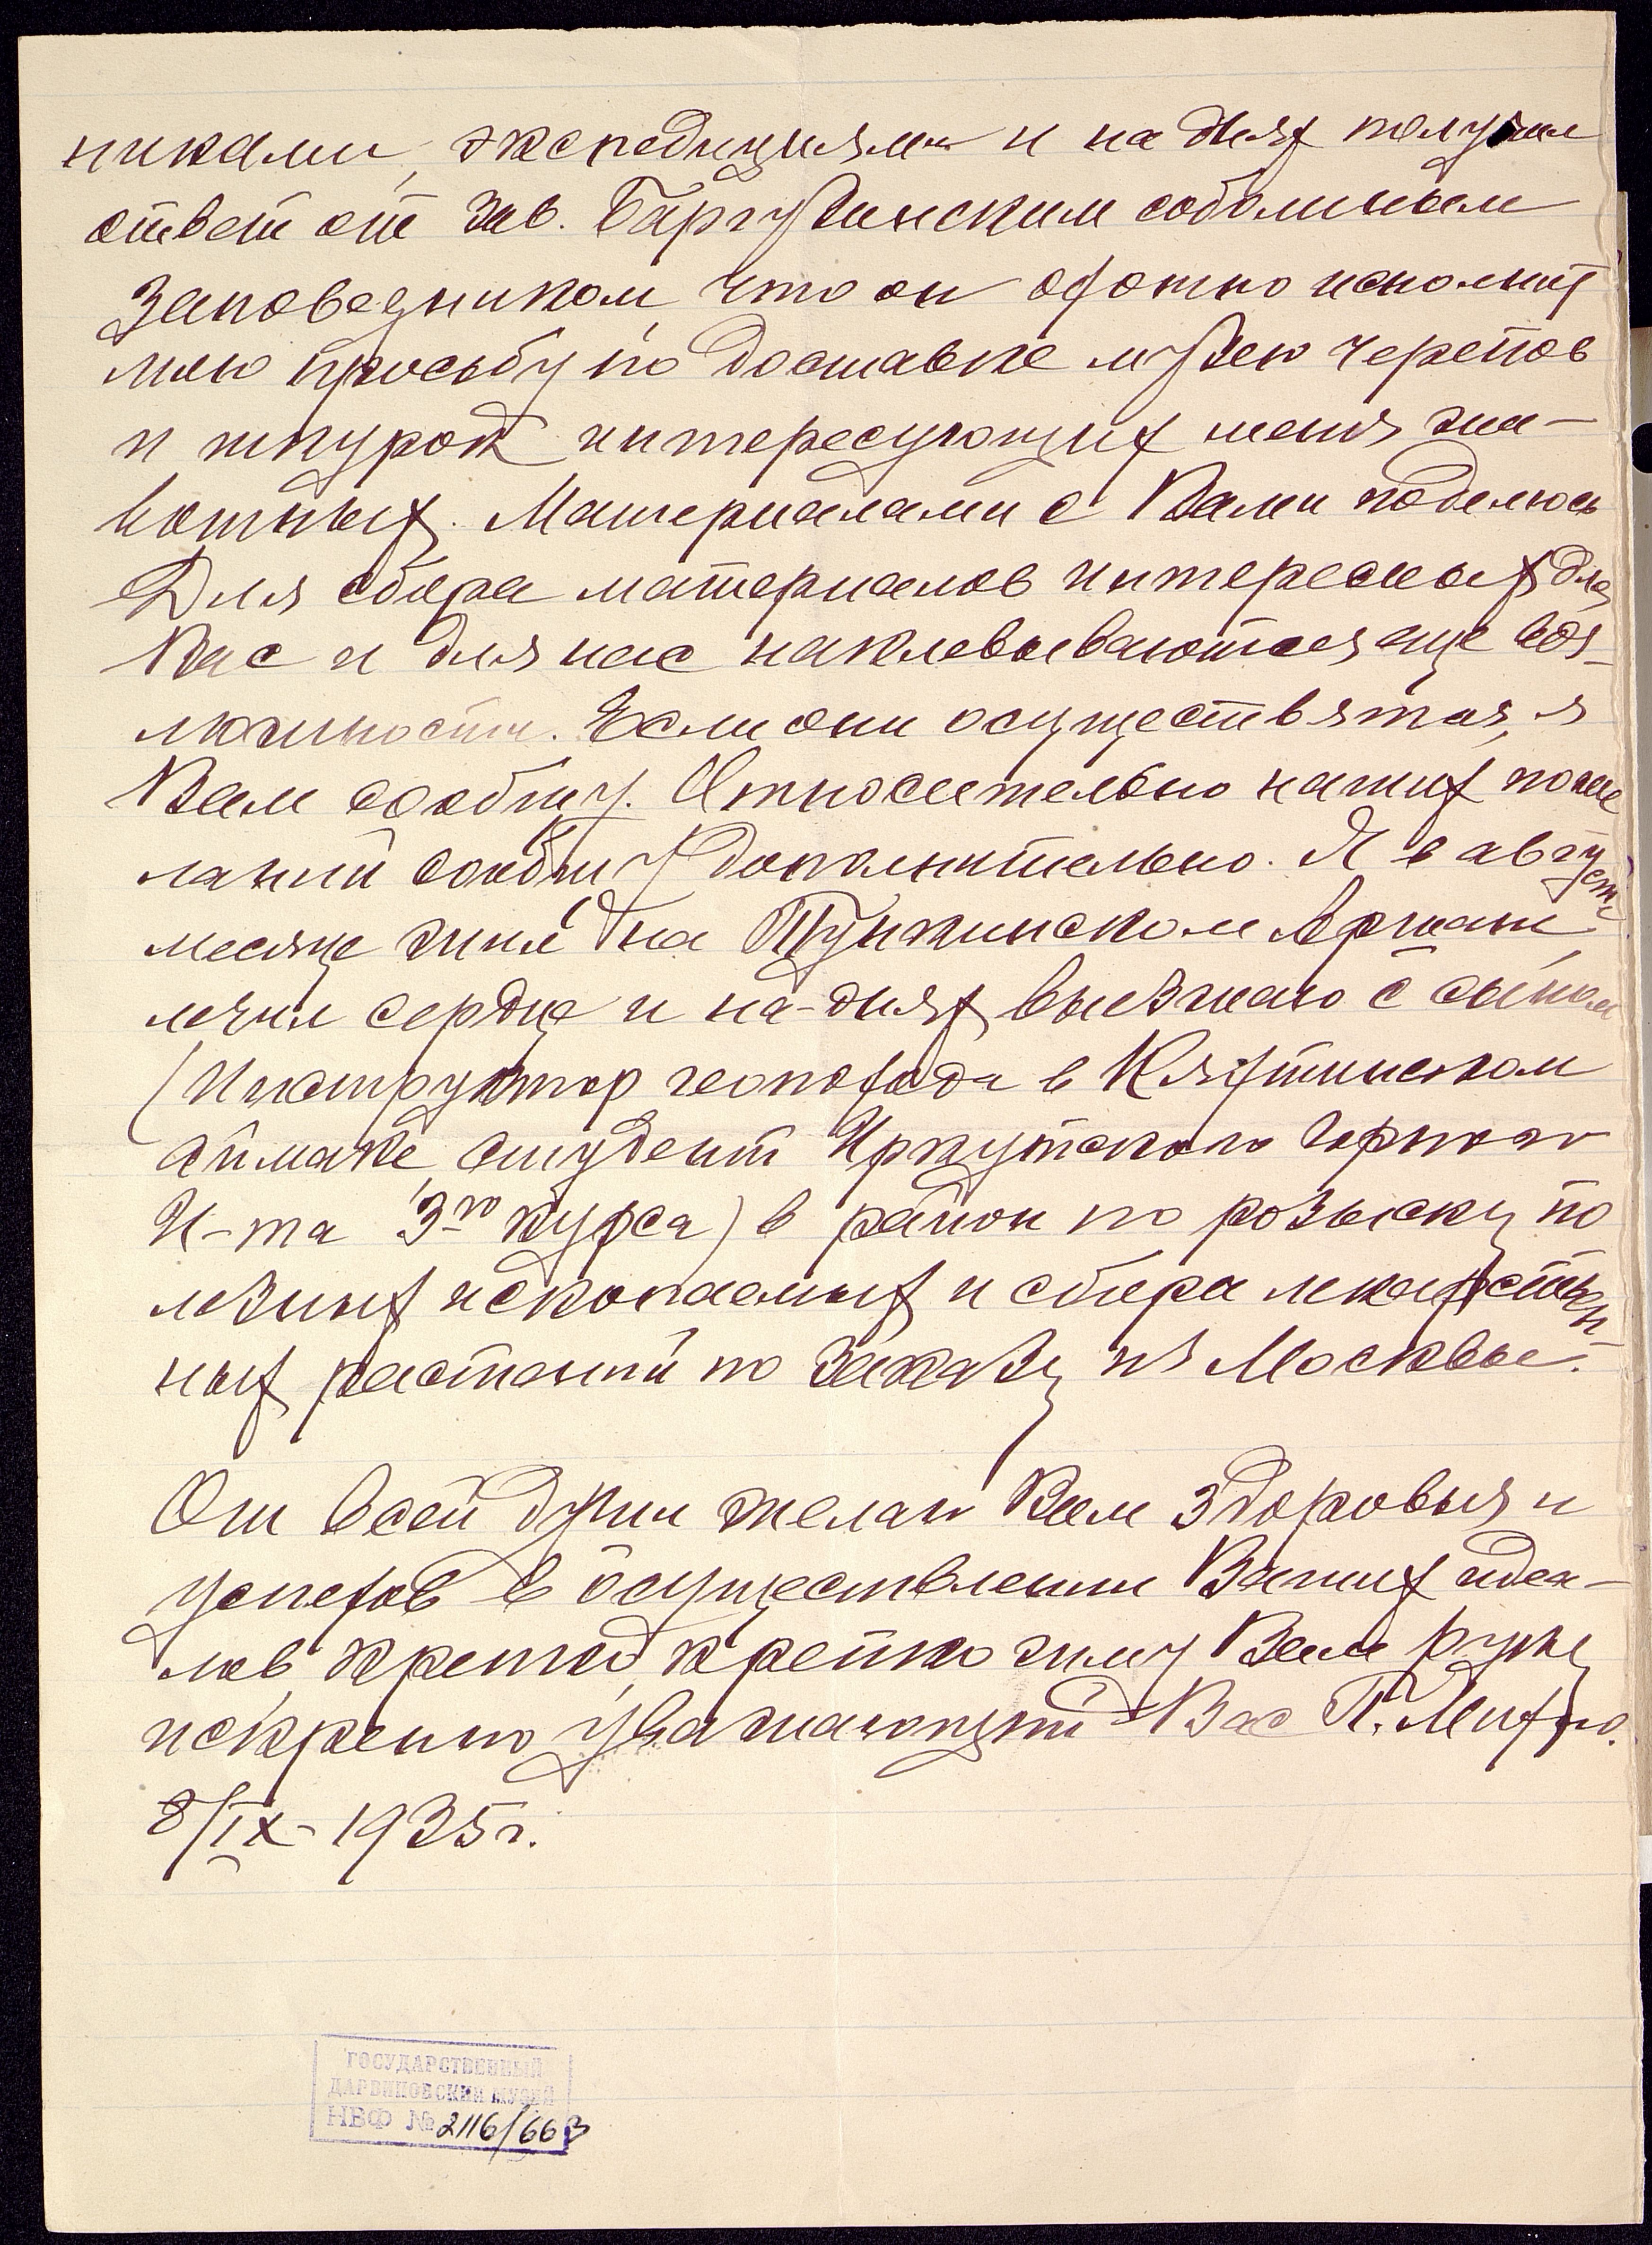 никами, экспедициями и на днях получил
ответ от зав. Баргузинским соболиным
заповедником, что он охотно исполнит
мою просьбу по доставке музею черепов
и шкурок интересующих меня жи-
вотных. Материалами с Вами поделюсь
Для сбора материалов интересных для
Вас и для нас наклевываются еще воз-
можности. Если они осуществятся, я
Вам сообщу. Относительно наших поже
ланий сообщу дополнительно. Я в августе
месяце жил на Тункинском Аршане,
лечил сердце и на-днях выезжаю с сыном
(Инструктор геопохода в Кяхтинском
аймаке, студент Иркутского Горного
И-та 3го курса) в район по розыску по
лезных ископаемых и сбора лекарствен-
ных растений по заказу из Москвы.
От всей души желаю Вам здоровья и
успехов в осуществлении Ваших идеа-
лов, крепко, крепко жму Вам руку
искренно уважающий Вас П.
8/IX-1935 г.
ГОСУДАРСТВЕННЫЙ
ДАРВИНОВСКИЙ МУЗЕЙ
НВФ № 2116/663